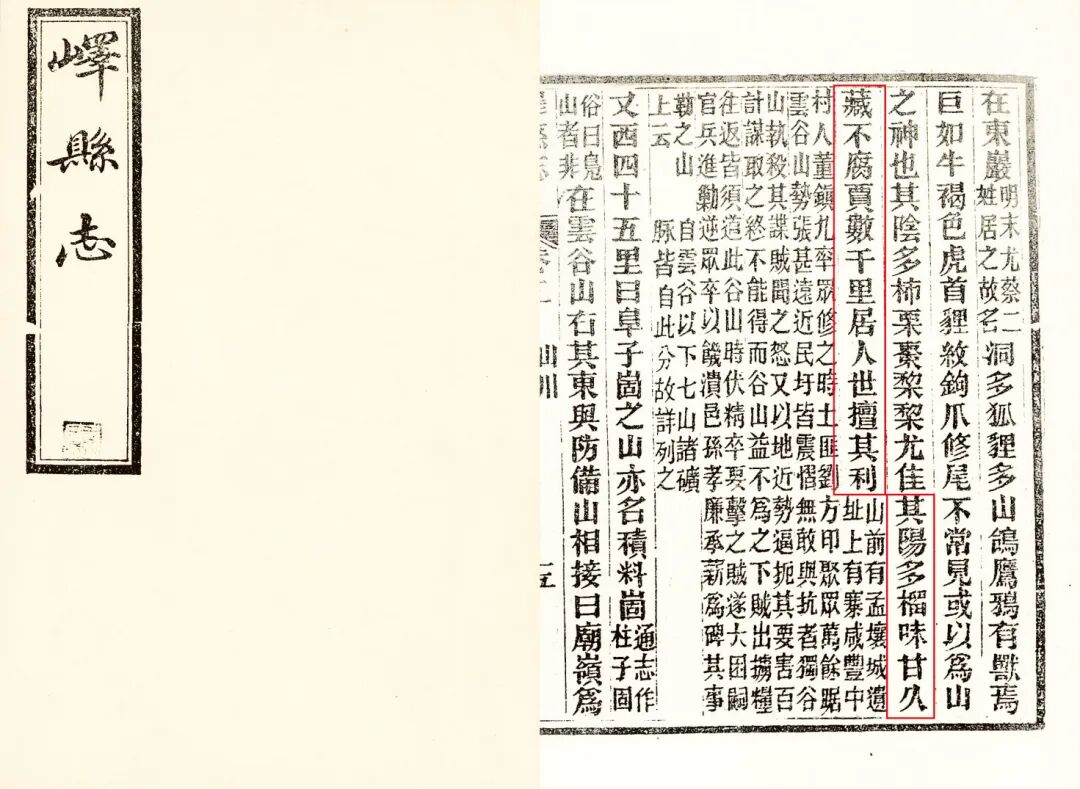 嶧縣志
在東巖明末尤蔡二姓居之故名洞多狐狸多山鴿鷹鴉有獸焉
巨如牛褐色虎首貍紋鉤爪修尾不常見或以爲山
之神也其陰多柿栗棗棃棃尤佳其陽多榴味甘久
藏不腐賈數千里居人世擅其利山前有孟壤城遺址上有寨咸豐中
村人董鎮九率眾修之時土匪劉方印聚眾萬餘踞
雲谷山勢張甚遠近民圩皆震慴無敢與抗者獨谷
山執殺其諜賊聞之怒又以地近勢逼扼其要害百
計謀取之終不能得而谷山益不爲之下賊出擄糧
往返皆須道此谷山時伏精卒要擊之賊遂大困嗣
官兵進勦逆眾卒以饑潰邑孫孝廉承薪爲碑其事
勒之山上云 自雲谷以下七山諸礦脈皆自此分故詳列之
又西四十五里曰阜子崮之山亦名積料崮通志作柱子崮
俗曰鳧山者非在雲谷山右其東與防備山相接曰廟嶺爲